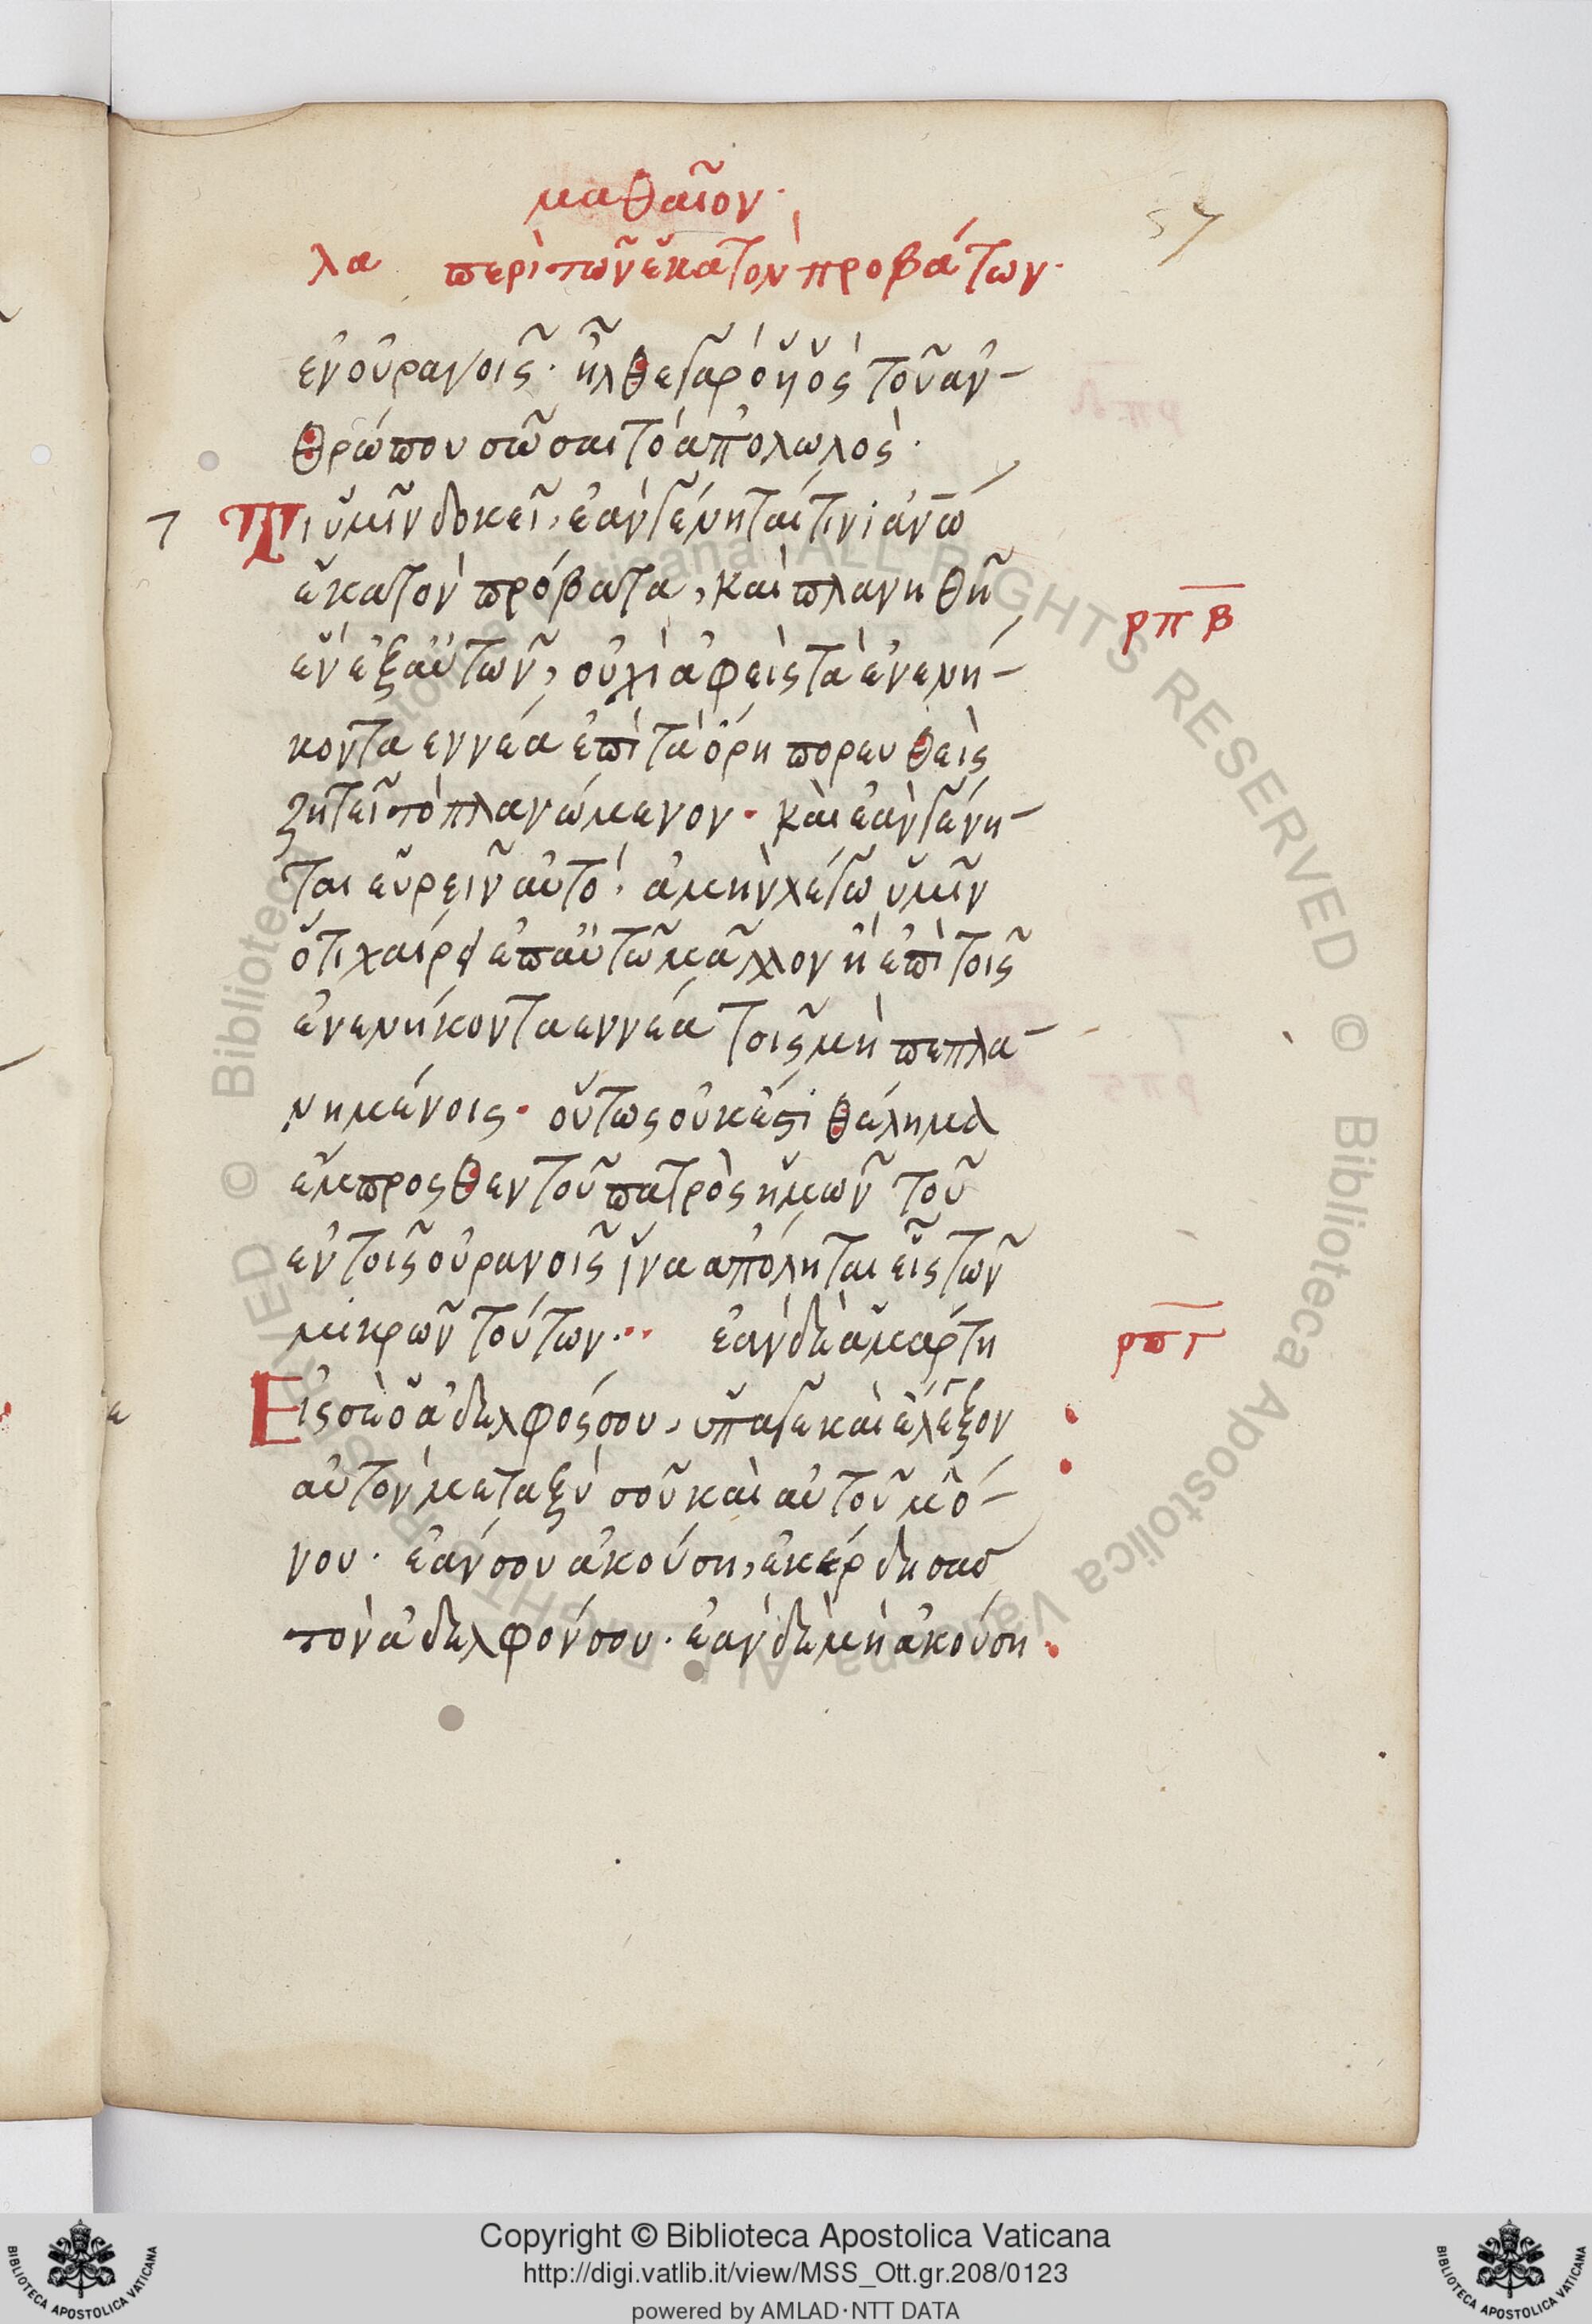 μαθαῖον·
57
λα περὶ τῶν ἑκατὸν προβάτων·
ἐν οὐρανοῖς· ἦλθε γὰρ ὁ ὑὸς τοῦ ἀν-
θρώπου σῶσαι τὸ ἀπολωλός·
τ Τί ὑμῖν δοκεῖ, ἐὰν γένηται τινὶ ἀνω
ἑκατὸν πρόβατα, καὶ πλανηθῆ
ρπβ
ἓν ἐξ αὐτῶν, οὐχὶ ἀφεὶς τὰ ἐνενή-
κοντα εννέα ἐπὶ τὰ ὄρη πορευθεὶς
ζητεῖ τὸ πλανώμενον· καὶ ἐὰν γένη-
ται εὑρεῖν αὐτό· ἀμὴν λέγω ὑμῖν
ὅτι χαίρει ἐπ αὐτῶ μᾶλλον ἢ ἐπὶ τοῖς
ἐνενήκοντα εννέα τοῖς μὴ πεπλα-
νημένοις· οὕτως οὐκ ἔστι θέλημα
ἔμπροςθεν τοῦ πατρὸς ἡμῶν τοῦ
ἐν τοῖς οὐρανοῖς ἵνα ἀπόληται εἷς τῶν
μικρῶν τούτων·· ἐὰν δὲ ἁμάρτη
ρπγ
ε Εἰς σὲ ὁ ἀδελφός σου, ὕπαγε καὶ ἔλεγξον
αὐτὸν μεταξὺ σοῦ καὶ αὐτοῦ μό-
νου· ἐάν σου ἀκούση, ἐκέρδησας
τὸν ἀδελφόν σου· ἐὰν δὲ μὴ ἀκούση·
© Biblioteca Apostolica Vaticana ALL RIGHTS RESERVED © Biblioteca Apostolica Vaticana ALL RIGHTS RESERVED
BIBLIOTECA APOSTOLICA VATICANA
Copyright © Biblioteca Apostolica Vaticana
http://digi.vatlib.it/view/MSS_Ott.gr.208/0123
powered by AMLAD·NTT DATA
BIBLIOTECA APOSTOLICA VATICANA